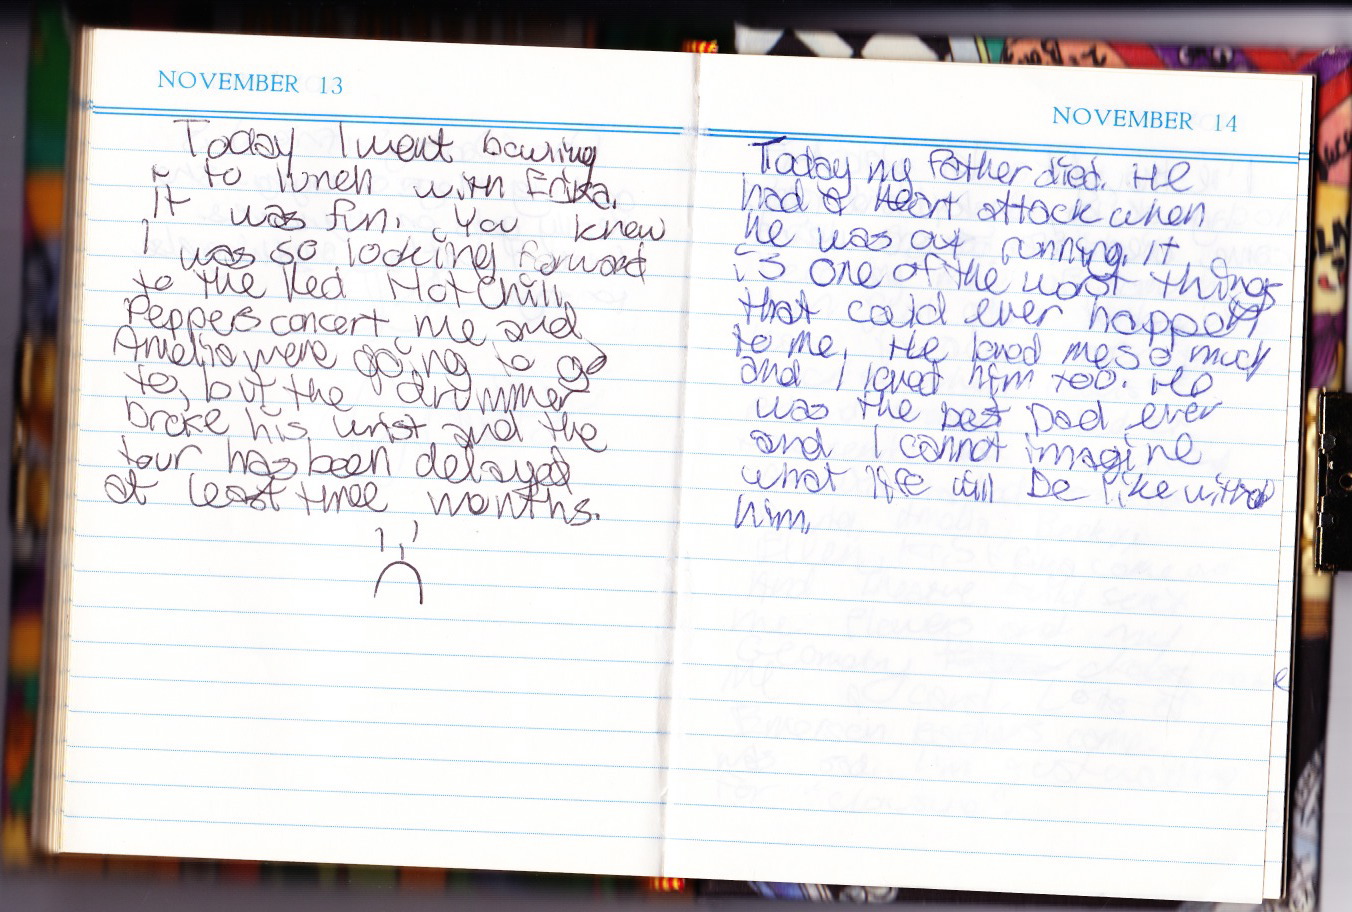 NOVEMBER 13
Today I went bowling
to lunch with Erika.
It was fun. You know
I was so looking forward
to the Red Hot Chili
Peppers concert me and
Amelia were going to go
to, but the drummer
broke his wrist and the
tour has been delayed
at least three months.
NOVEMBER 14
Today my father died. He
had a heart attack when
he was out running. It
is one of the worst things
that could ever happen
to me. He loved me so much
and I loved him too. He
was the best Dad ever
and I cannot imagine
what life will be like without
him.